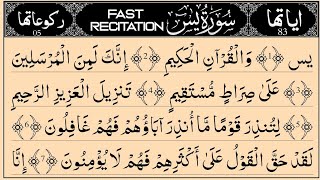 اٰياتها 83 سُوْرَةُ يٰسٓ FAST RECITATION ركوعاتها 05
يس ﴿1﴾ وَالْقُرْآنِ الْحَكِيمِ ﴿2﴾ إِنَّكَ لَمِنَ الْمُرْسَلِينَ
﴿3﴾ عَلَىٰ صِرَاطٍ مُّسْتَقِيمٍ ﴿4﴾ تَنزِيلَ الْعَزِيزِ الرَّحِيمِ
﴿5﴾ لِتُنذِرَ قَوْمًا مَّا أُنذِرَ آبَاؤُهُمْ فَهُمْ غَافِلُونَ ﴿6﴾
لَقَدْ حَقَّ الْقَوْلُ عَلَىٰ أَكْثَرِهِمْ فَهُمْ لَا يُؤْمِنُونَ ﴿7﴾ إِنَّا